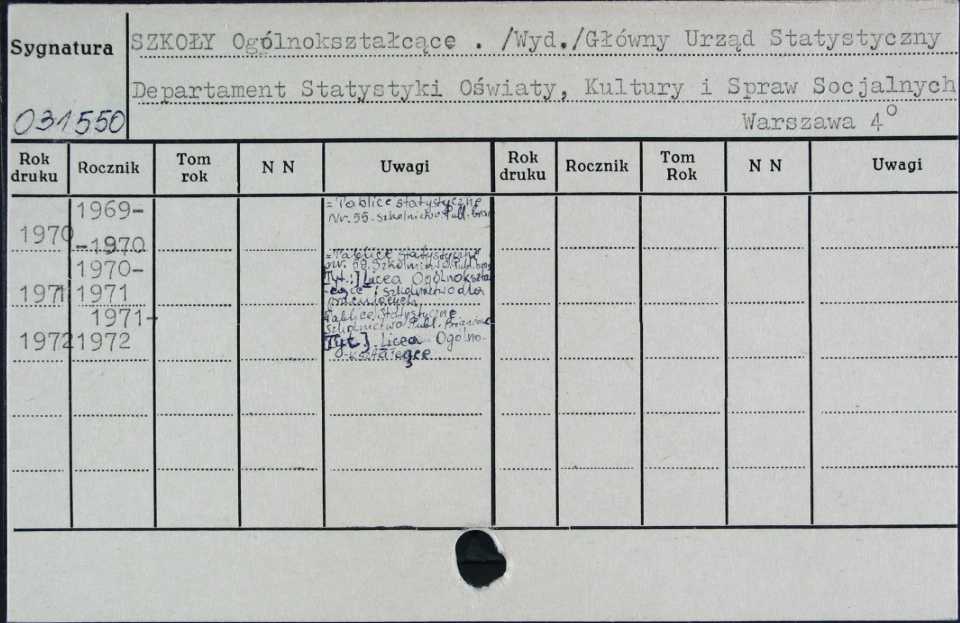 Sygnatura
SZKOŁY Ogólnokształcące . /Wyd./Główny Urząd Statystyczny
Departament Statystyki Oświaty, Kultury i Spraw Socjalnych
031550
Warszawa 4°
Rok druku Rocznik Tom rok N N Uwagi Rok druku Rocznik Tom Rok N N Uwagi
1969-
= Tablice statystyczne
Nr. 55. Szkolnictwo Publ.
1970 -1970
1970-
= Tablice statystyczne
Szkolnictwo Publ.
Tyt.:] Licea Ogólnokształ-
1971 1971
-cące i szkolnictwo dla
1971-
Tablice statystyczne
Szkolnictwo Publ.
1972 1972
[Tyt.] Licea Ogólno-
-kształcące